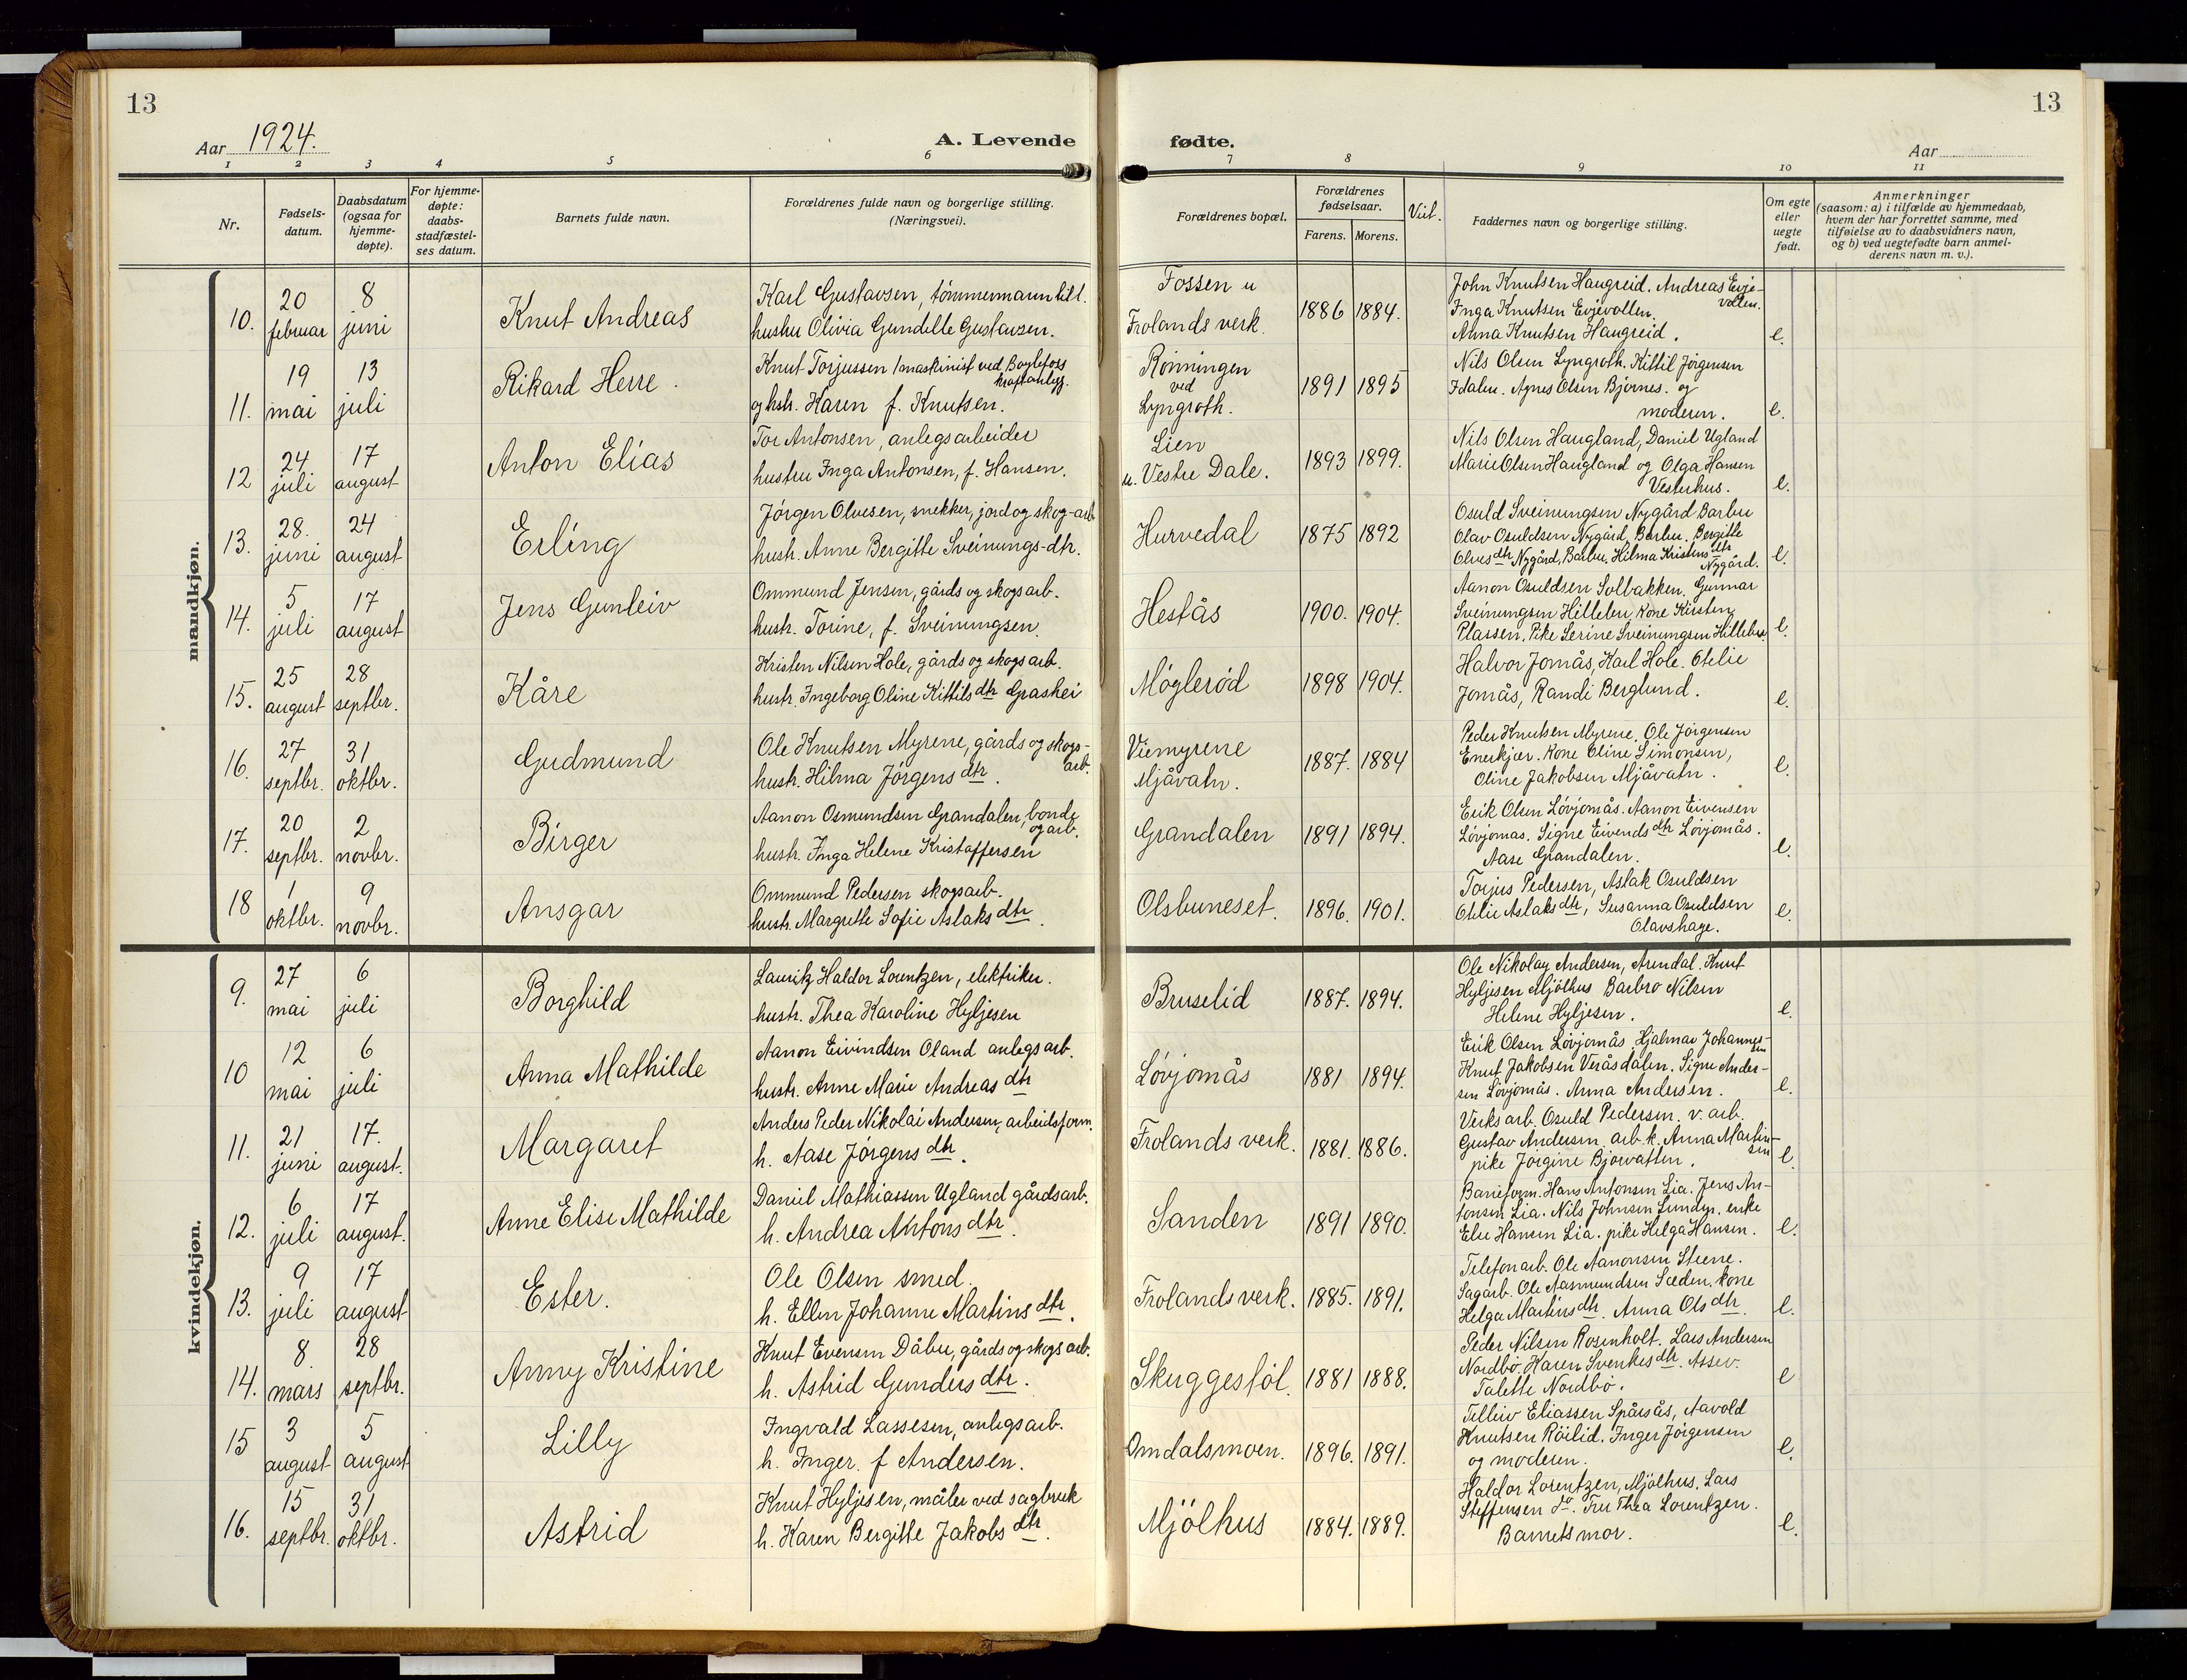 13
13
Aar 1924.
A. Levende
fødte.
Aar
1 2 3 4 5 6 7 8 9 10 11
Nr.
Fødsels-
datum.
Daabsdatum
(ogsaa for
hjemme-
døpte).
For hjemme-
døpte:
daabs-
stadfæstel-
ses datum.
Barnets fulde navn.
Forældrenes fulde navn og borgerlige stilling.
(Næringsvei).
Forældrenes bopæl.
Forældrenes
fødselsaar.
Farens. Morens.
Faddernes navn og borgerlige stilling.
Om egte
eller
uegte
født.
Anmerkninger
(saasom: a) i tilfælde av hjemmedaab,
hvem der har forrettet samme, med
tilføielse av to daabsvidners navn,
og b) ved uegtefødte barn anmel-
derens navn m. v.).
mandkjøn.
10.
20
februar
8
juni
Knut Andreas
Karl Gustavsen, tömmermann
hustru Olivia Gundille Gustavsen.
Fossen u
Frolands verk.
1886 1884.
John Knutsen Haugreid. Andreas Evje-
vollen.
Inga Knutsen Evjevollen.
Anna Knutsen Haugreid.
e.
11.
19
mai
13
juli
Rikard Herre.
Knut Torjussen (maskinist ved Boylefoss
kraftanlegg.
og hstr. Karen f. Knutsen.
Rönningen
ved
Lyngroth.
1891 1895
Nils Olsen Lyngroth. Kittil Jörgensen
Idalen. Agnes Olsen Bjornes. og
moderen.
e.
12
24
juli
17
august
Anton Elias
Tor Antonsen, anlegsarbeider
hustru Inga Antonsen, f. Hansen.
Lien
u. Vestre Dale.
1893 1899.
Nils Olsen Haugland, Daniel Ugland
Marie Olsen Haugland og Olga Hansen
Vesterhus.
e.
13.
28.
juni
24
august
Erling
Jörgen Olvesen, snekker, jord og skog-arb
hustr. Anne Bergitte Sveinungs-dtr.
Hurvedal
1875 1892
Osuld Sveinungsen Nygård Barbu
Olav Osuldsen Nygård, Barbu. Bergitte
Olvesdtr Nygård, Barbu. Hilma Kristensdtr
Nygård.
e.
14.
5
juli
17
august
Jens Gunleiv
Ommund Jensen, gårds og skogsarb.
hustr. Torine, f. Sveinungsen.
Hestås
1900. 1904.
Aanon Osuldsen Solbakken. Gunnar
Sveinungsen Hilleben, kone Kirsten
Plassen. Pike Serine Sveinungsen Hilleben
e.
15.
25
august
28
septbr.
Kåre
Kristen Nilsen Hole, gårds og skogsarb.
hustr. Ingeborg Oline Kittilsdtr Grashei
Møglerød
1898 1904.
Halvor Jomås, Karl Hole. Otelie
Jomås, Randi Berglund.
e.
16.
27
septbr.
31
oktbr.
Gudmund
Ole Knutsen Myrene, gårds og skogs-
arb.
hustr. Hilma Jörgensdtr.
Viemyrene
Mjåvatn.
1887. 1884
Peder Knutsen Myrene. Ole Jörgensen
Enerkjær. kone Oline Simonsen,
Oline Jakobsen Mjåvatn.
e.
17.
20
septbr.
2
novbr.
Birger
Aanon Osmundsen Grandalen, bonde
og arb.
hustr. Inga Helene Kristoffersen
Grandalen
1891 1894.
Erik Olsen Lövjomås. Aanon Eivensen
Lövjomas. Signe Eivendsdtr Lövjomås.
Aase Grandalen.
e.
18
1
oktbr.
9
novbr.
Ansgar
Ommund Pedersen skogsarb.
hustr. Margrethe Sofie Aslaksdtr.
Olsbuneset.
1896. 1901.
Torjus Pedersen, Aslak Osuldsen
Otelie Aslaksdtr, Susanna Osuldsen
Olavshage.
e.
kvindekjøn.
9.
27
mai
6
juli
Borghild
Lauritz Haldor Lorentzen, elektriker.
hustr. Thea Karoline Hyljesen
Bruselid
1887. 1894.
Ole Nikolay Andersen, Arendal. Knut
Hyljesen Mjölhus Barbro Nilsen
Helene Hyljesen.
e.
10
12
mai
6
juli
Anna Mathilde
Aanon Eivindsen Oland anlegsarb.
hustr. Anne Marie Andreasdtr
Lövjomås
1881 1894.
Erik Olsen Lövjomås. Hjalmar Johannes-
sen
Knut Jakobsen Veråsdalen. Signe Ander-
sen Lövjomås. Anna Andersen.
e.
11.
21
juni
17.
august.
Margaret
Anders Peder Nikolai Andersen, arbeidsform.
h. Aase Jörgensdtr.
Frolands verk.
1881. 1886.
Verksarb. Osuld Pedersen. v. arb.
Gustav Andersen arb. k. Anna Martin-
sen
pike Jörgine Bjorvatten.
e.
12.
6
juli
17
august.
Anne Elise Mathilde
Daniel Mathiassen Ugland gårdsarb.
h. Andrea Antonsdtr.
Sanden
1891 1890.
Hans Antonsen Lia. Jens An-
tonsen Lia. Nils Johnsen enke
Elie Hansen Lia. pike Helga Hansen.
e.
13.
9
juli
17
august
Ester.
Ole Olsen smed.
h. Ellen Johanne Martinsdtr.
Frolands verk.
1885. 1891.
Telefonarb. Ole Aanonsen Steene.
Sagarb. Ole Aasmundsen Sæden. kone
Helga Martinsdtr. Anna Olsdtr.
e.
14.
8.
mars
28
septbr.
Anny Kristine
Knut Evensen Dåbu, gårds og skogs arb.
h. Astrid Gundersdtr.
Skuggestöl.
1881 1888.
Peder Nilsen Rosenholt. Lars Andersen
Nordbö. Karen Svenkesdtr. Assev.
Talette Nordbö.
e
15
3
august
5
august
Lilly
Ingvald Lassesen, anlegsarb.
h. Inger f Andersen.
Omdalsmoen.
1896. 1891.
Telleiv Eliassen Spårsås, Aavold
Knutsen Röilid. Inger Jörgensen
og moderen.
e.
16.
15
septbr.
31
oktbr.
Astrid
Knut Hyljesen, måler ved sagbruk
h. Karen Bergitte Jakobsdtr.
Mjölhus
1884. 1889.
Haldor Lorentzen, Mjölhus, Lars
Steffensen do. Fru Thea Lorentzen.
Barnets mor.
e.